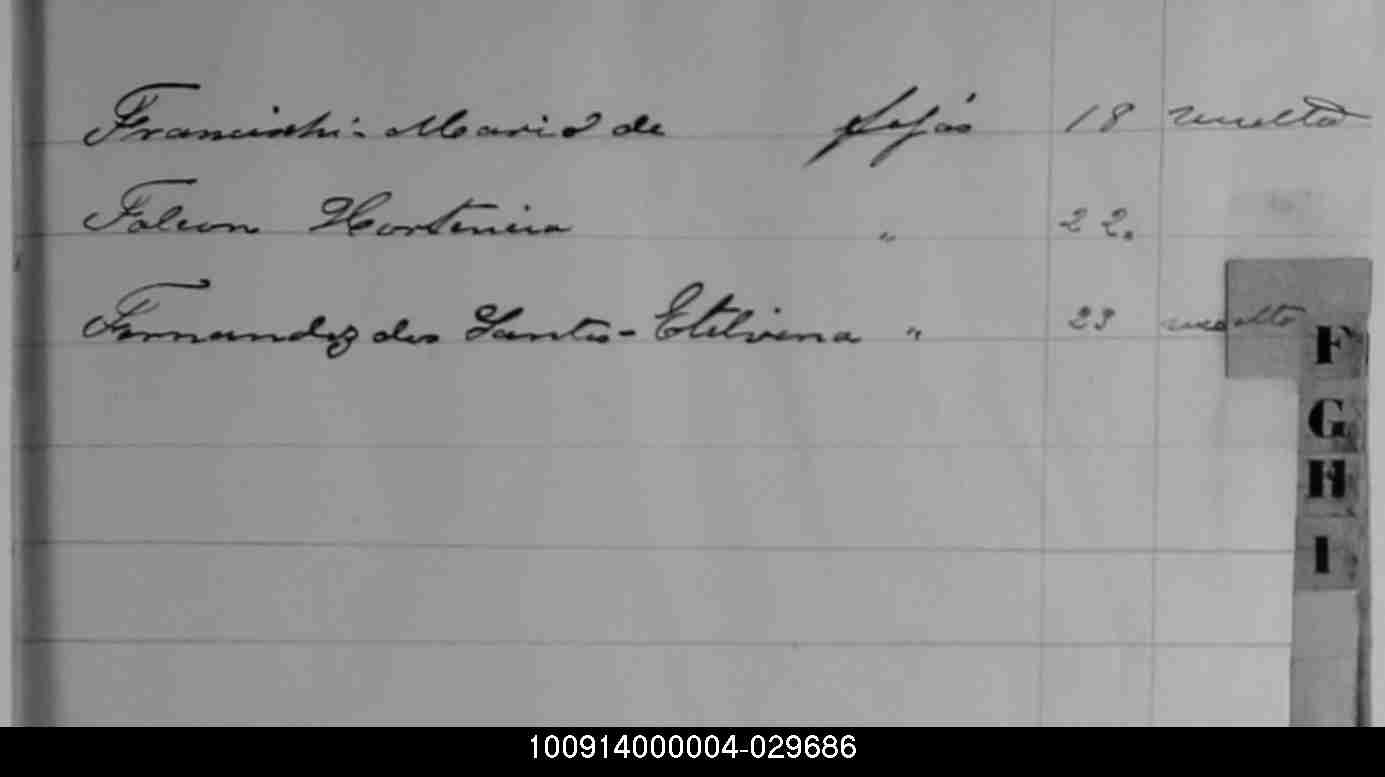 Francischi - Maria de fojas 18 vuelta
Falcon Hortencia " 22.
Fernandez dos Santos - Etelvina " 23 vuelta
F
G
H
I
100914000004-029686